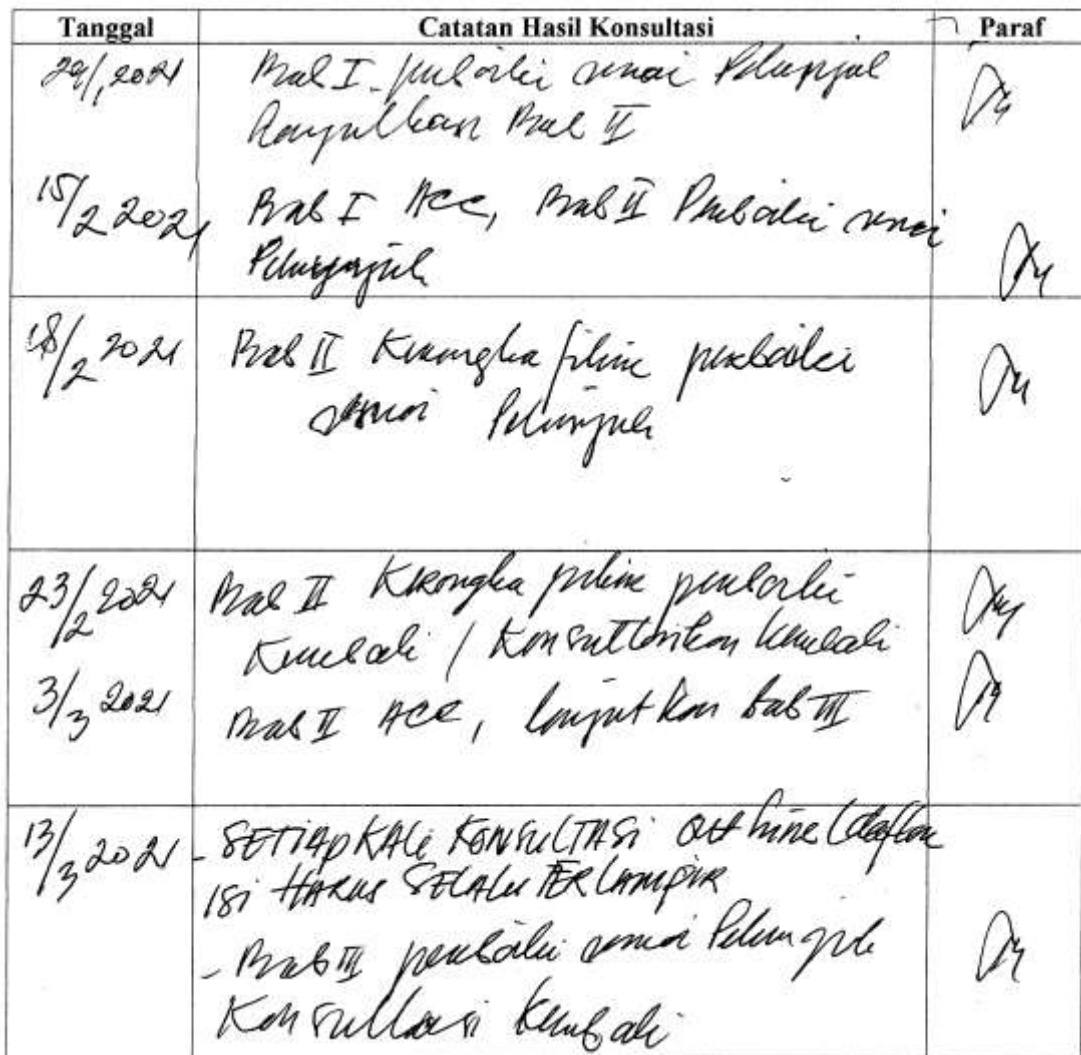 Tanggal Catatan Hasil Konsultasi Paraf
29/1 2021 Bab I perbaiki sesuai Petunjuk
Lanjutkan Bab II
15/2 2021 Bab I Acc, Bab II Perbaiki sesuai
Petunjuk
18/2 2021 Bab II Kerangka pikir perbaiki
sesuai Petunjuk
23/2 2021 Bab II Kerangka pikir perbaiki
Kembali / Konsultasikan kembali
3/3 2021 Bab II ACC, lanjutkan bab III
13/3 2021 - SETIAP KALI KONSULTASI Outline (daftar
isi HARUS SELALU TERLAMPIR
- Bab III perbaiki sesuai Petunjuk
Konsultasi kembali